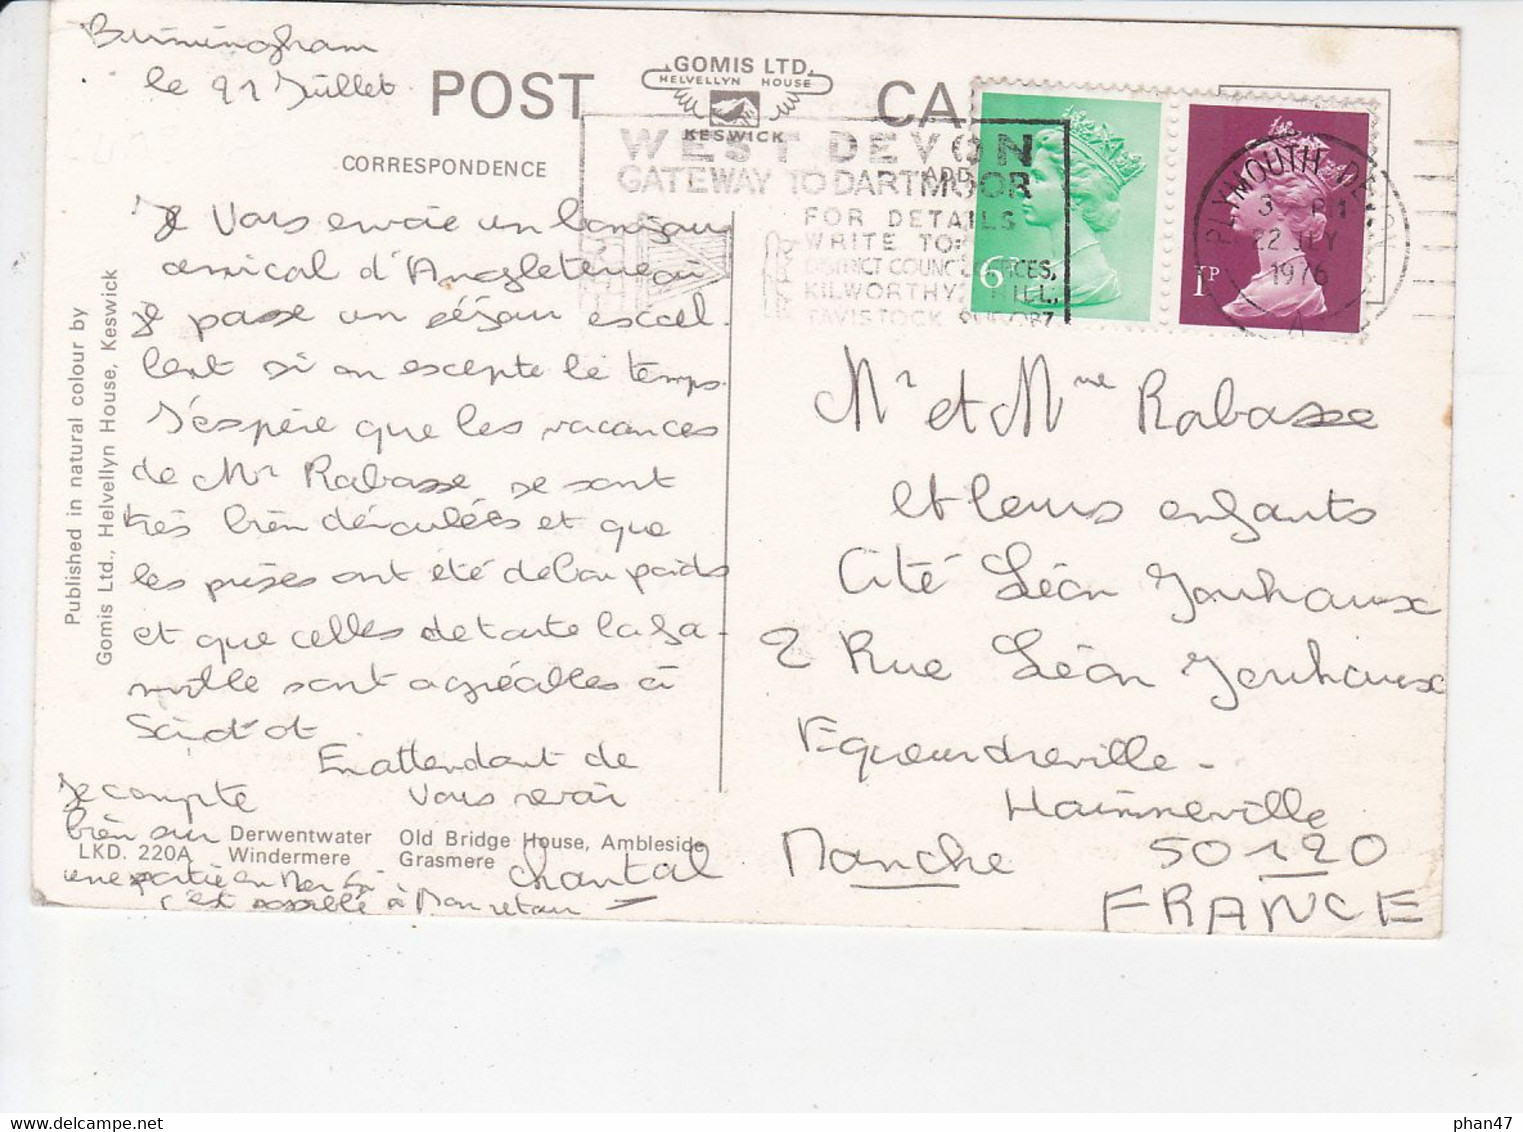 Birmingham
le 21 Juillet
POST CA
GOMIS LTD.
HELVELLYN HOUSE
KESWICK
CORRESPONDENCE
ADD
WEST DEVON
GATEWAY TO DARTMOOR
FOR DETAILS
WRITE TO:
DISTRICT COUNCIL OFFICES,
KILWORTHY HILL,
TAVISTOCK
6P
1P
PLYMOUTH DEVON
3 PM
22 JLY
1976
A
Je Vous envoie un bonjour
amical d'Angleterre où
Je passe un séjour excel-
lent si on excepte le temps.
J'espère que les vacances
de Mr Rabasse se sont
très bien déroulées et que
les prises ont été de bon poids
et que celles de toute la fa-
mille sont agréables à
En attendant de
Vous revoir
Chantal
Je compte
bien sur
une partie en Mer si
c'est possible à Mon retour
Published in natural colour by
Gomis Ltd., Helvellyn House, Keswick
LKD. 220A
Derwentwater
Windermere
Old Bridge House, Ambleside
Grasmere
Mr et Mme Rabasse
et leurs enfants
Cité Léon Jouhaux
2 Rue Léon Jouhaux
Equeurdreville -
Hainneville
Manche 50120
FRANCE
phan47